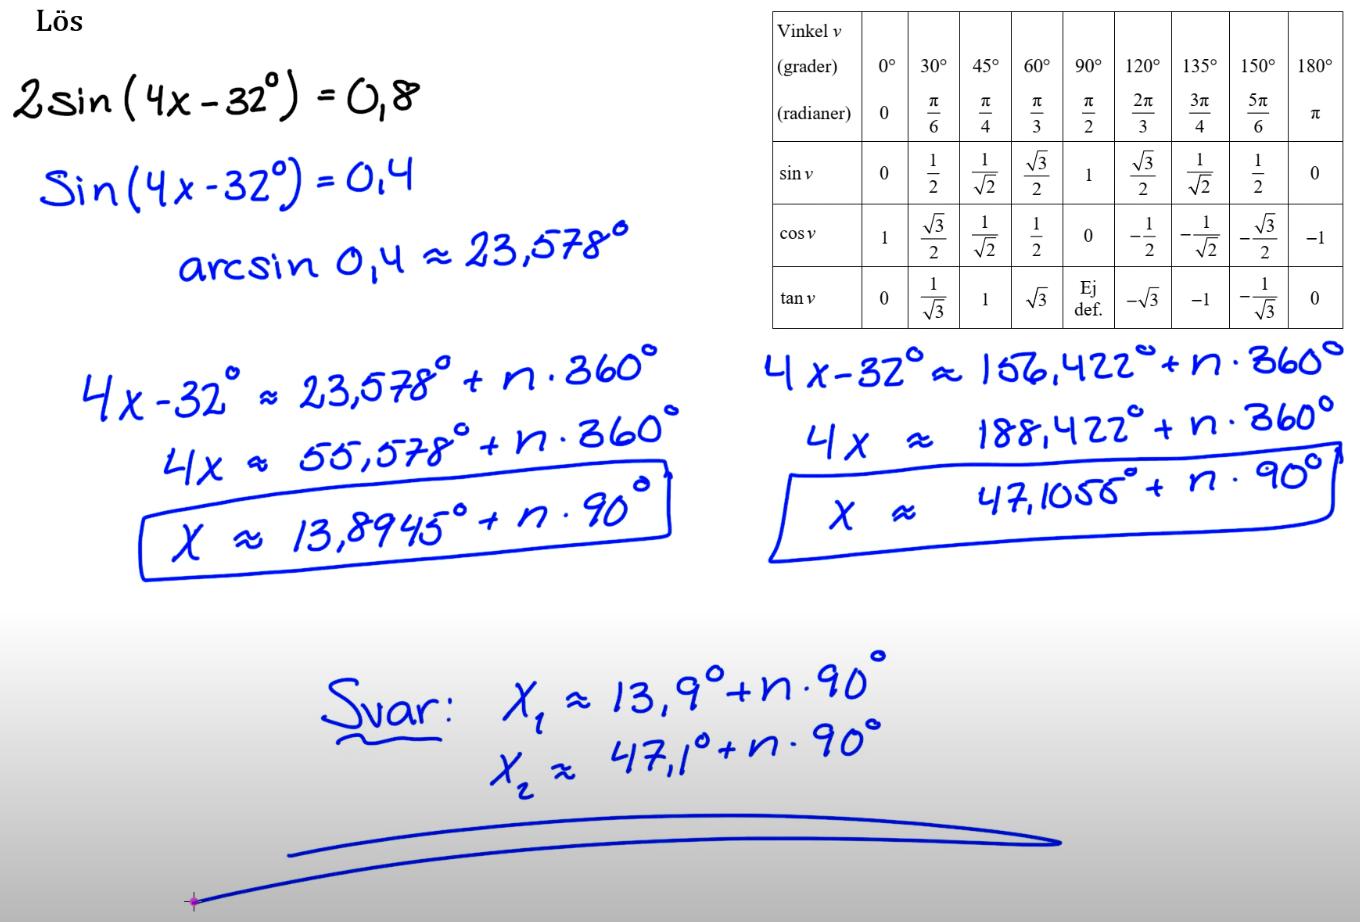 Lös
2sin(4x-32°) = 0,8
Sin(4x-32°) = 0,4
arcsin 0,4 ≈ 23,578°
Vinkel v
(grader) 0° 30° 45° 60° 90° 120° 135° 150° 180°
(radianer) 0 π/6 π/4 π/3 π/2 2π/3 3π/4 5π/6 π
sin v 0 1/2 1/√2 √3/2 1 √3/2 1/√2 1/2 0
cos v 1 √3/2 1/√2 1/2 0 -1/2 -1/√2 -√3/2 -1
tan v 0 1/√3 1 √3 Ej def. -√3 -1 -1/√3 0
4x-32° ≈ 23,578° + n·360°
4x ≈ 55,578° + n·360°
x ≈ 13,8945° + n·90°
4x-32° ≈ 156,422° + n·360°
4x ≈ 188,422° + n·360°
x ≈ 47,1055° + n·90°
Svar: x₁ ≈ 13,9° + n·90°
x₂ ≈ 47,1° + n·90°